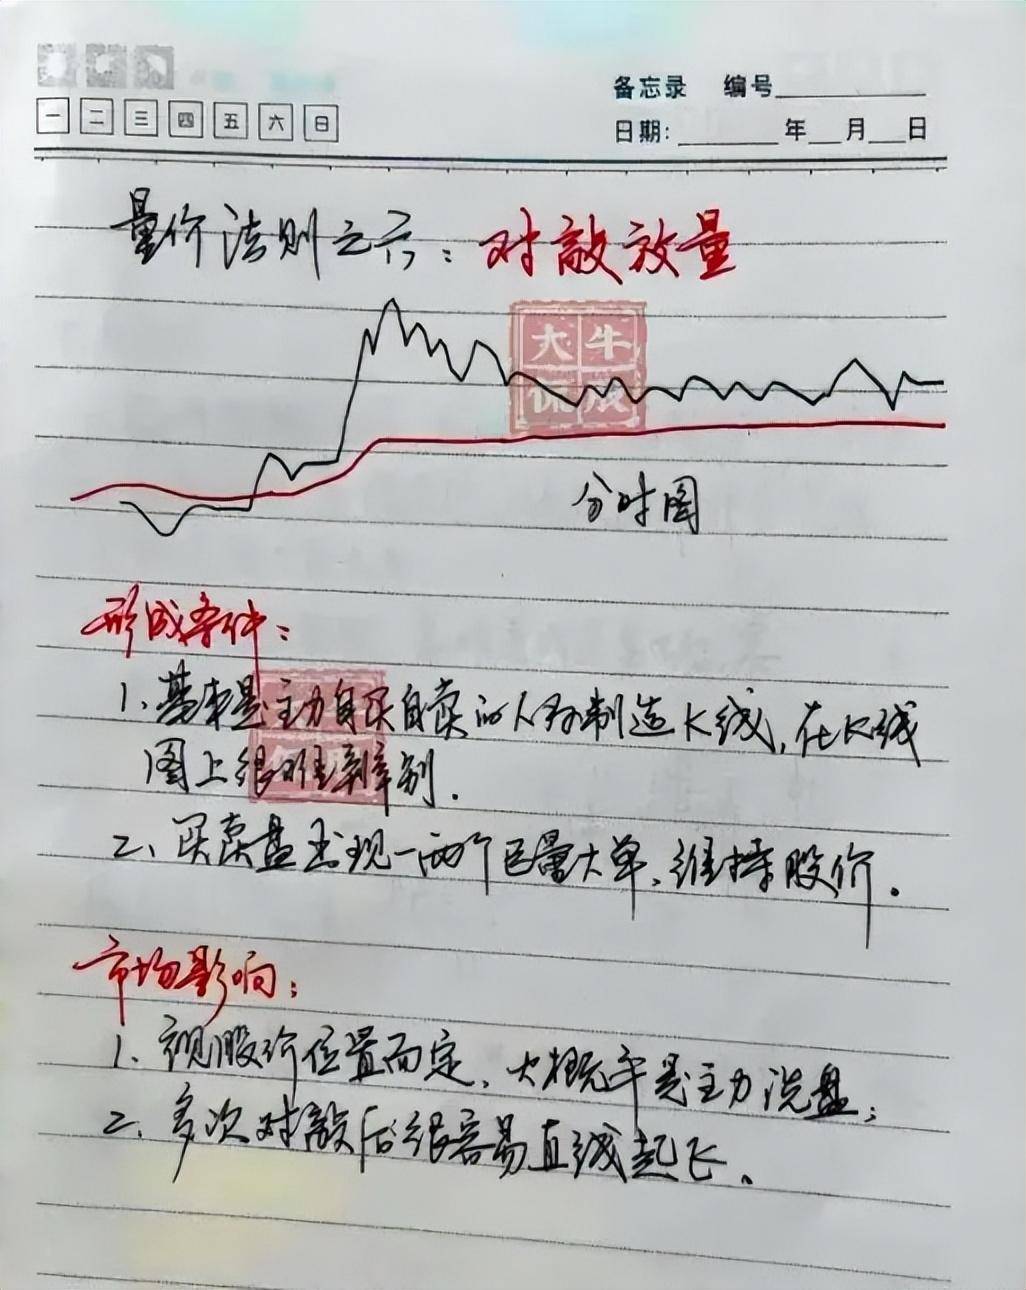 备忘录 编号
一 二 三 四 五 六 日
日期: 年 月 日
量价法则之六：对敲放量
大牛
侃股
分时图
形成条件：
1、基本是主力自买自卖的人为制造K线，在K线
图上很难辨别.
2、买卖盘出现一两个巨量大单、维持股价.
市场影响：
1、视股价位置而定、大概率是主力洗盘；
2、多次对敲后很容易直线起飞.